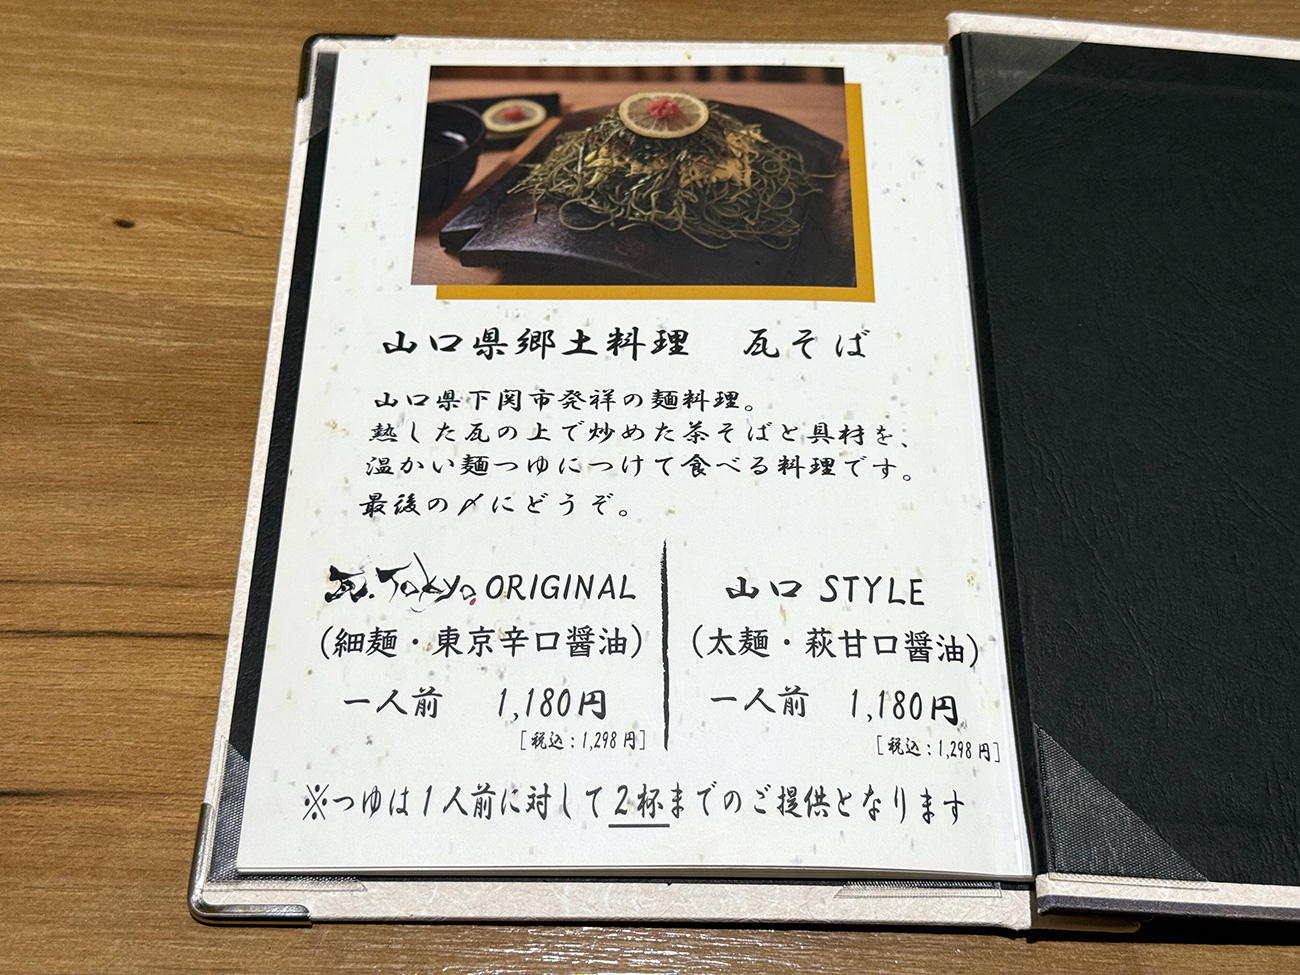 山口県郷土料理　瓦そば
山口県下関市発祥の麺料理。
熱した瓦の上で炒めた茶そばと具材を、
温かい麺つゆにつけて食べる料理です。
最後の〆にどうぞ。
瓦.Tokyo ORIGINAL
(細麺・東京辛口醤油)
一人前　1,180円
[税込:1,298円]
山口 STYLE
(太麺・萩甘口醤油)
一人前　1,180円
[税込:1,298円]
※つゆは1人前に対して2杯までのご提供となります